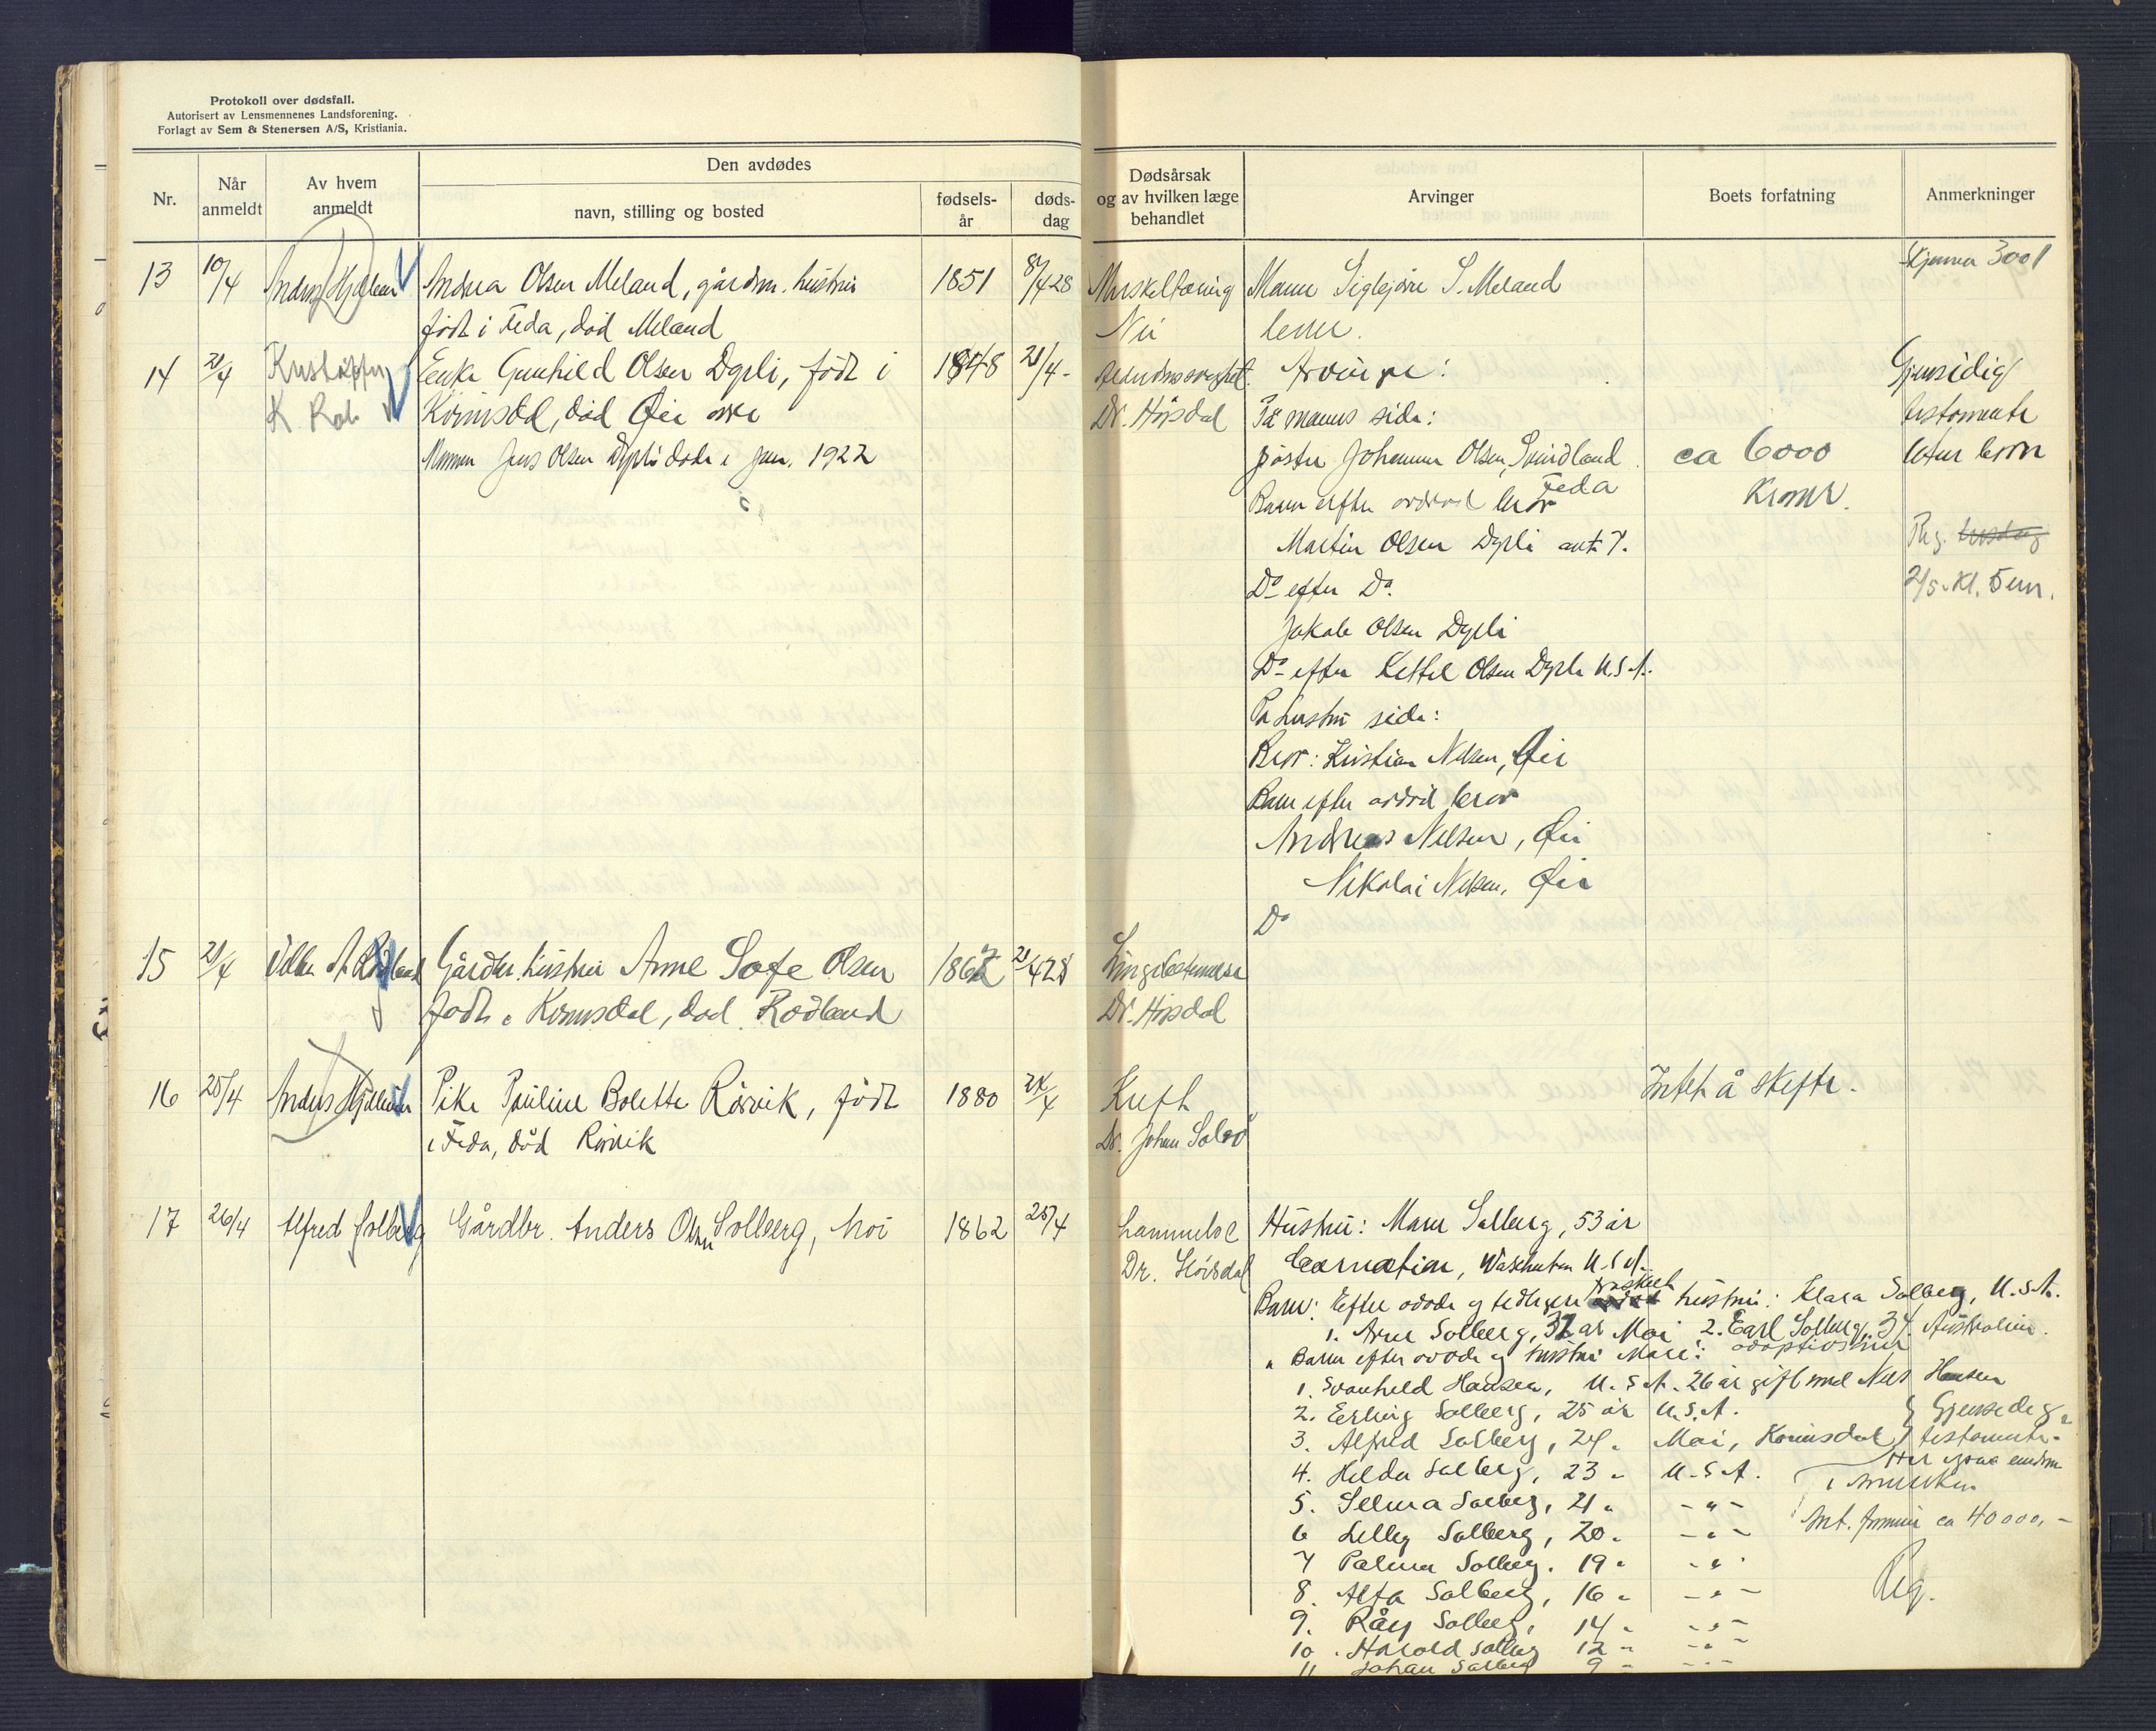 Protokoll over dødsfall.
Autorisert av Lensmennenes Landsforening.
Forlagt av Sem & Stenersen A/S, Kristiania.
Nr.
Når anmeldt
Av hvem anmeldt
Den avdødes
navn, stilling og bosted
fødsels-år
døds-dag
Dødsårsak og av hvilken læge behandlet
Arvinger
Boets forfatning
Anmerkninger
13 10/4 Andrea Olsen Meland, gårdm. hustru 1851 8/4 28 Mann S. Meland
født i Feda, død Meland
14 21/4 Enke Gunhild Olsen Dypli, født i 1848 21/4 - Arvinger: Gjensidig
K. Rob Dr. Høisdal På manns side: testamente
Kvinesdal, død Øie
Mannen Jens Olsen Dypli døde i jan. 1922
søster Johanne Olsen, Svindland ca 6000 uten born
Feda Kroner.
Barn efter avdød bror
Martin Olsen Dypli ant 7. Reg.
Do efter Do. 2/5 Kl. 5 em.
Jakob Olsen Dypli
Do efter Kettel Olsen Dypli U.S.A.
På hustru side:
Bror: Kristian Nilsen, Øie
Barn efter avdød bror
Andreas Nilsen, Øie
Nikolai Nilsen, Øie
Do
15 21/4 Gårdbr. hustru Anne Sofe Olsen 1862 21/4 28 Lungebetennelse
født i Kvinesdal, død Rødland Dr. Høisdal
16 25/4 Pike Pauline Bolette Rørvik, født 1880 24/4 Kreft Intet å skifte.
i Feda, død Rørvik Dr. Johan
17 26/4 Alfred Solberg Gårdbr. Anders Olsen Solberg, Moi 1862 25/4 Lammelse Hustru: Maren Solberg, 53 år
Dr. Høisdal Carnation, U.S.A.
Barn: Efter avdøde og tidligere fraskilt hustru: Klara Solberg, U.S.A.
1. Arne Solberg, 37 år Moi 2. Earl Solberg, 34. Australien.
" Barn efter avdøde og hustru Mare: adoptivsønn
1. Svanhild Hansen, U.S.A. 26 år gift med Nils Hansen
2. Erling Solberg, 25 år U.S.A. Gjensidig
3. Alfred Solberg, 24 " Moi, Kvinesdal testamente.
4. Hilda Solberg, 23 " U.S.A. Har også eiendom
i Amerika
5. Selma Solberg, 21 " - " -
6 Lilly Solberg, 20 " - " - Ant. formue ca 40000,-
7 Palma Solberg, 19 " - " -
8. Alfa Solberg, 16 " - " - Reg.
9. Råy Solberg, 14 " - " -
10. Harold Solberg 12 " - " -
11 Johan Solberg 9 " - " -